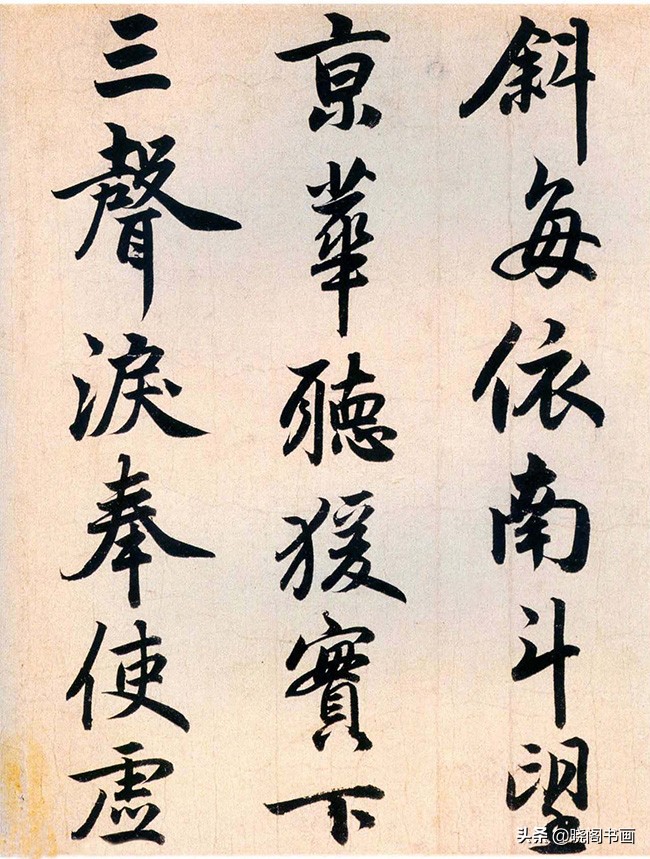 斜每依南斗望
京華聽猨實下
三聲淚奉使虛
头条 @晓阁书画